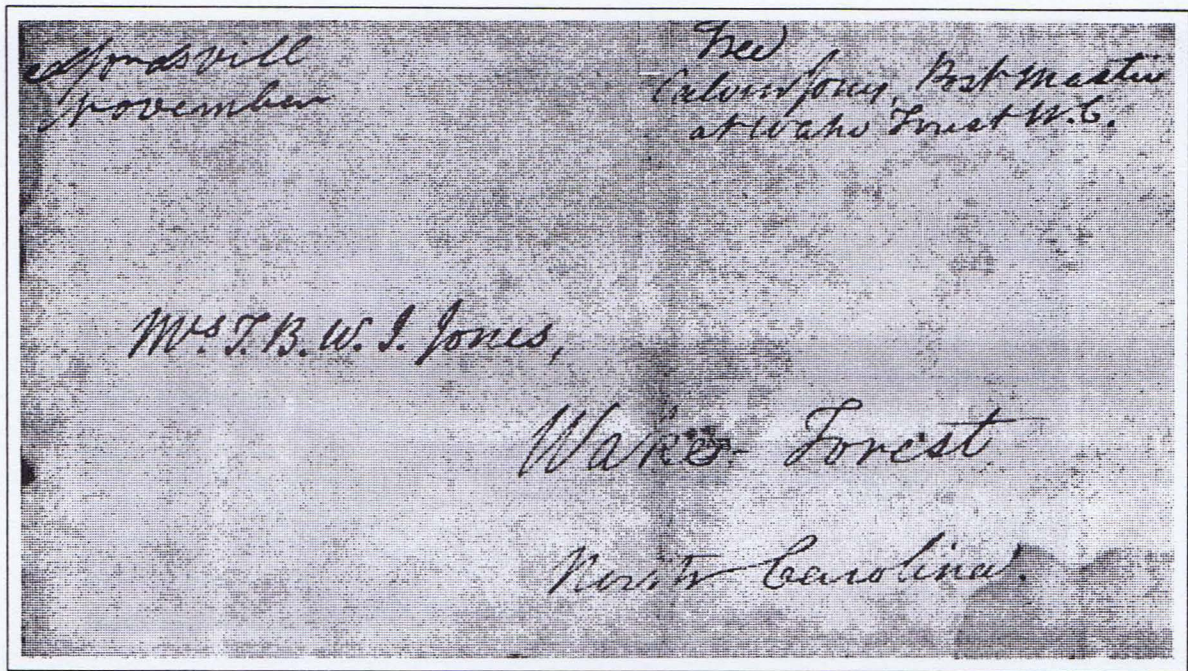 November
Free
Calvin Jones, Post Master
at Wake Forest N.C.
Mrs. T. B. W. I. Jones,
Wake Forest
North Carolina.